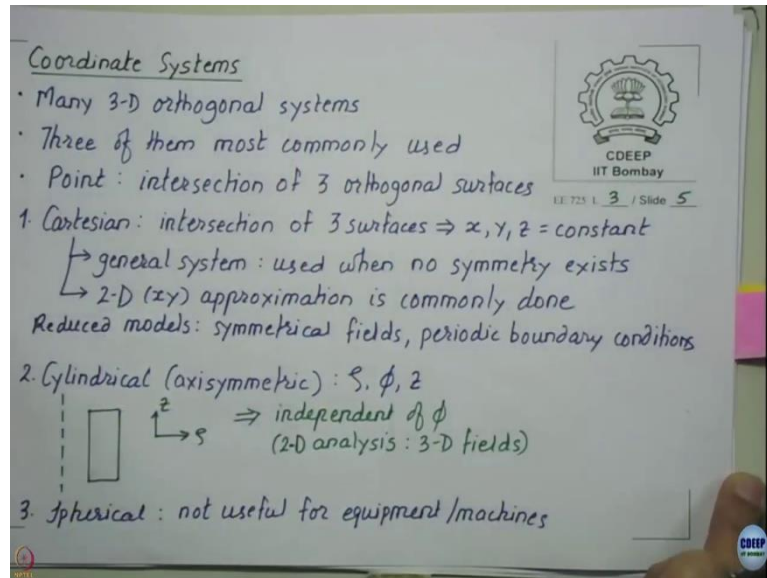 Coordinate Systems
· Many 3-D orthogonal systems
· Three of them most commonly used
· Point : intersection of 3 orthogonal surfaces
CDEEP
IIT Bombay
EE 725 L 3 / Slide 5
1. Cartesian : intersection of 3 surfaces ⇒ x, y, z = constant
↳ general system : used when no symmetry exists
↳ 2-D (xy) approximation is commonly done
Reduced models: symmetrical fields, periodic boundary conditions
2. Cylindrical (axisymmetric) : ρ, φ, z
z
ρ
⇒ independent of φ
(2-D analysis : 3-D fields)
3. Spherical : not useful for equipment/machines
NPTEL
CDEEP
IIT BOMBAY